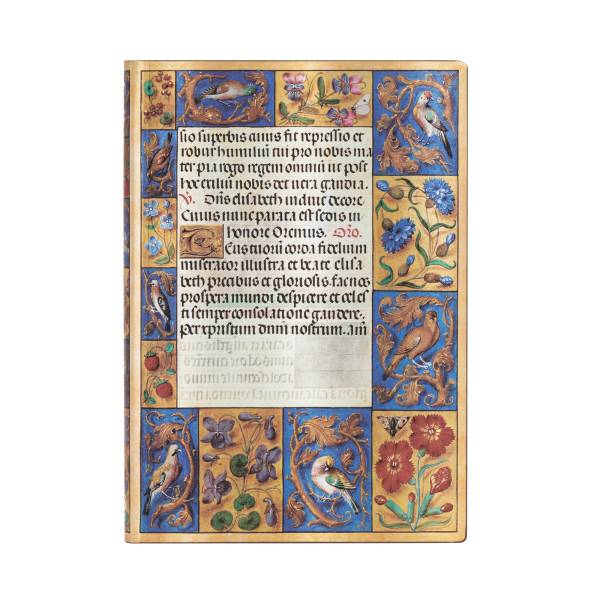 sio superbis cuius fit repressio et
robur humiliū tu pro nobis ma
ter pia rogo regem omniū ut post
hoc exiliū nobis det uera gaudia.
℣. Dn̄s elisabeth induit decore.
Cuius nunc parata est sedis in
honore Oremus. Oro.
Deus tuorū corda fidelium
miserator illustra et beate elisa
beth precibus et gloriosis. fac nos
prospera mundi despicere et celes
ti semper consolatione gaudere.
per xpristum dnm̄ nostrum. am̄